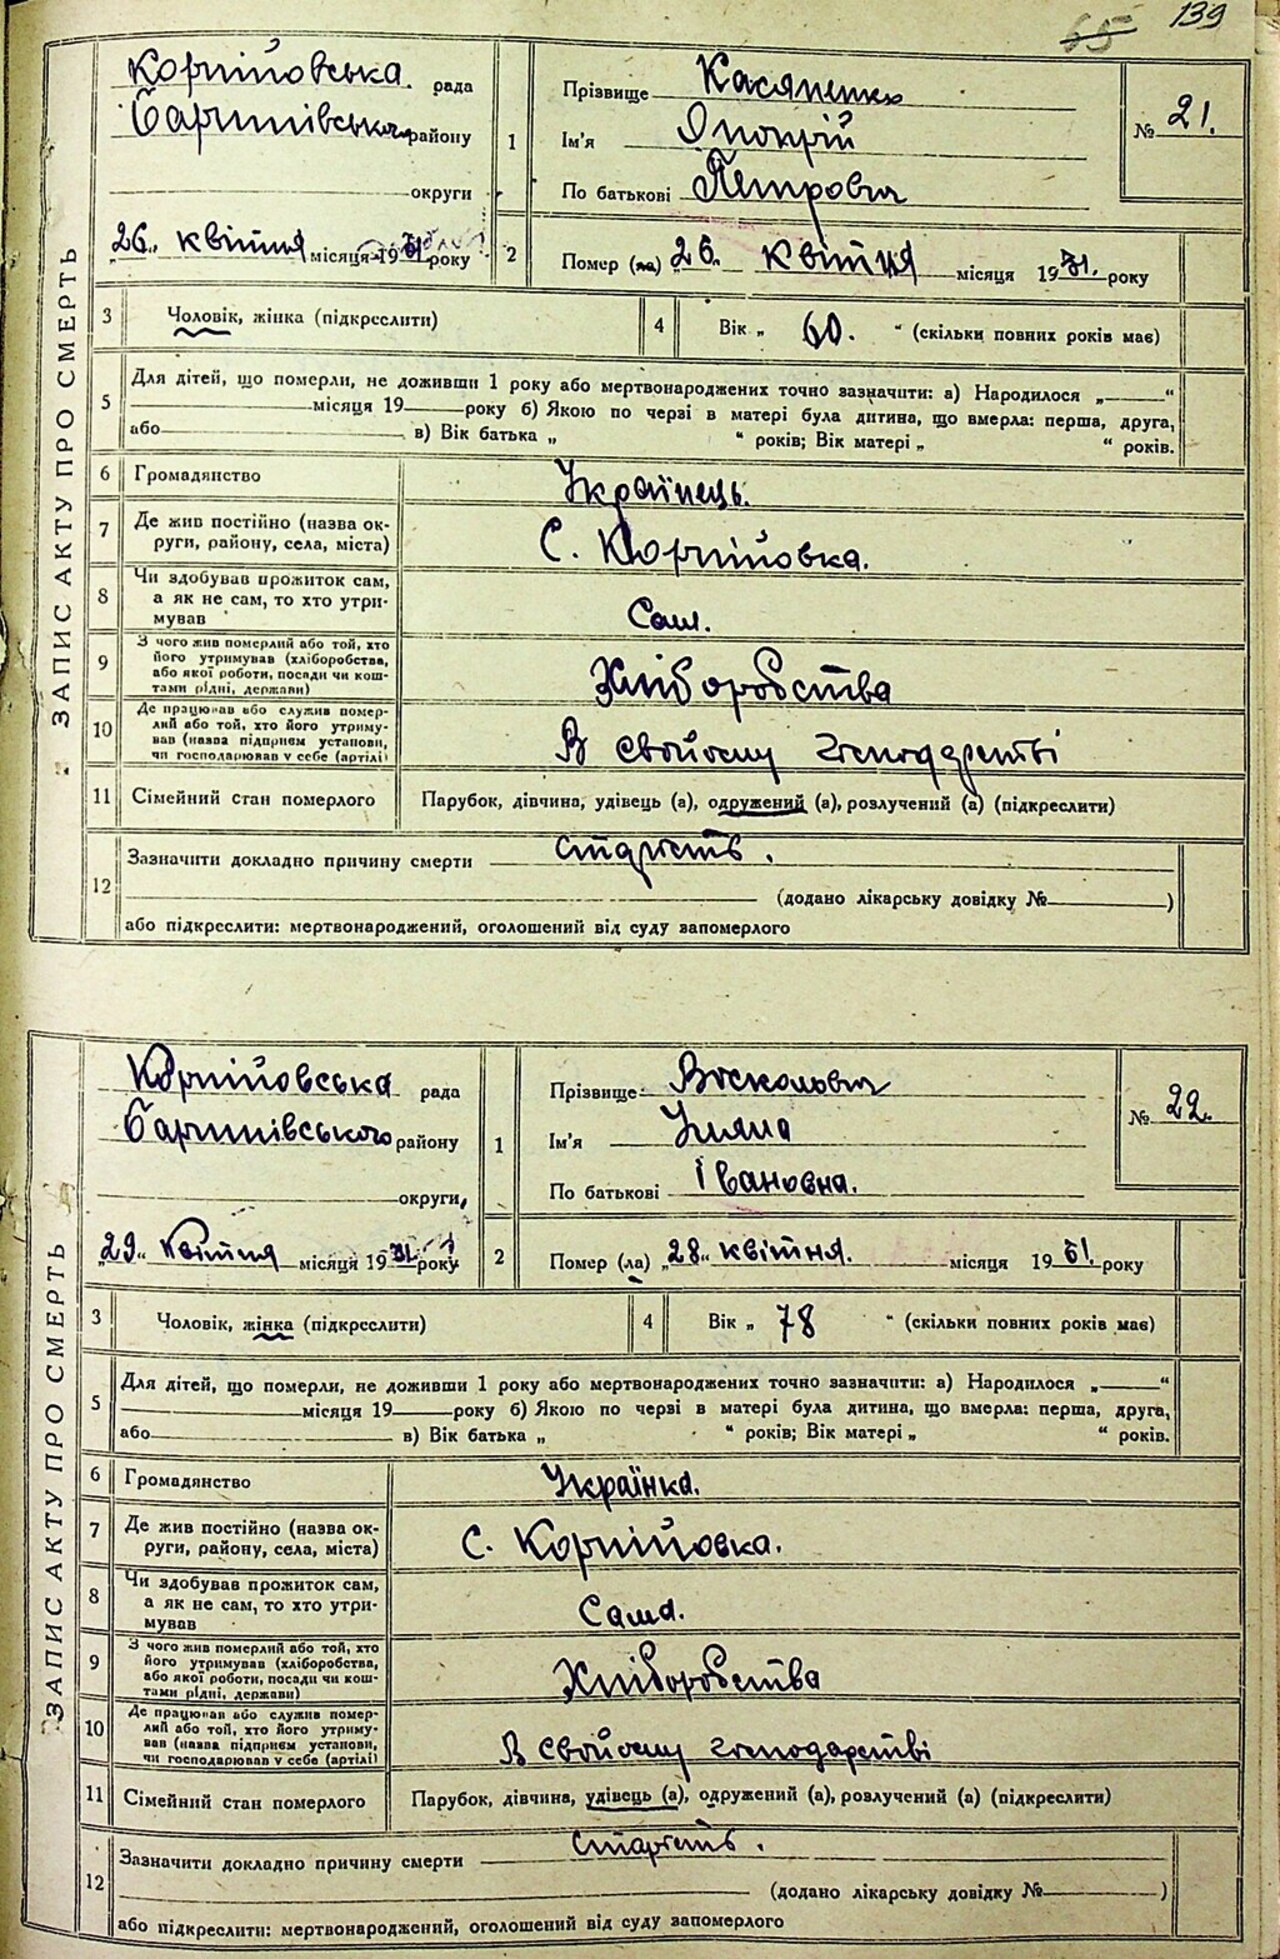 65 139
ЗАПИС АКТУ ПРО СМЕРТЬ
Корнійовська рада
Баришівського району
округи
„26“ квітня місяця 1931 року
1
Прізвище Касяненко
Ім'я Онопрій
По батькові Петрович
№ 21.
2
Помер (ла) „26.“ квітня місяця 1931. року
3 Чоловік, жінка (підкреслити)
4 Вік „ 60. “ (скільки повних років має)
5 Для дітей, що померли, не доживши 1 року або мертвонароджених точно зазначити: а) Народилося „ “
місяця 19 року б) Якою по черзі в матері була дитина, що вмерла: перша, друга,
або в) Вік батька „ “ років; Вік матері „ “ років.
6 Громадянство Українець.
7 Де жив постійно (назва ок-
руги, району, села, міста) С. Корнійовка.
8 Чи здобував прожиток сам,
а як не сам, то хто утри-
мував Сам.
9 З чого жив померлий або той, хто
його утримував (хліборобства,
або якої роботи, посади чи кош-
тами рідні, держави) Хліборобства
10 Де працював або служив помер-
лий або той, хто його утриму-
вав (назва підприєм установи,
чи господарював у себе (артілі) В свойому господарстві
11 Сімейний стан померлого Парубок, дівчина, удівець (а), одружений (а), розлучений (а) (підкреслити)
12 Зазначити докладно причину смерти старість.
(додано лікарську довідку № )
або підкреслити: мертвонароджений, оголошений від суду запомерлого
ЗАПИС АКТУ ПРО СМЕРТЬ
Корнійовська рада
Баришівського району
округи
„29“ квітня місяця 1931 року
1
Прізвище Восколович
Ім'я Уляна
По батькові Івановна.
№ 22.
2
Помер (ла) „28“ квітня. місяця 1931. року
3 Чоловік, жінка (підкреслити)
4 Вік „ 78 “ (скільки повних років має)
5 Для дітей, що померли, не доживши 1 року або мертвонароджених точно зазначити: а) Народилося „ “
місяця 19 року б) Якою по черзі в матері була дитина, що вмерла: перша, друга,
або в) Вік батька „ “ років; Вік матері „ “ років.
6 Громадянство Українка.
7 Де жив постійно (назва ок-
руги, району, села, міста) С. Корнійовка.
8 Чи здобував прожиток сам,
а як не сам, то хто утри-
мував Сама.
9 З чого жив померлий або той, хто
його утримував (хліборобства,
або якої роботи, посади чи кош-
тами рідні, держави) Хліборобства
10 Де працював або служив помер-
лий або той, хто його утриму-
вав (назва підприєм установи,
чи господарював у себе (артілі) В свойому господарстві
11 Сімейний стан померлого Парубок, дівчина, удівець (а), одружений (а), розлучений (а) (підкреслити)
12 Зазначити докладно причину смерти старість.
(додано лікарську довідку № )
або підкреслити: мертвонароджений, оголошений від суду запомерлого